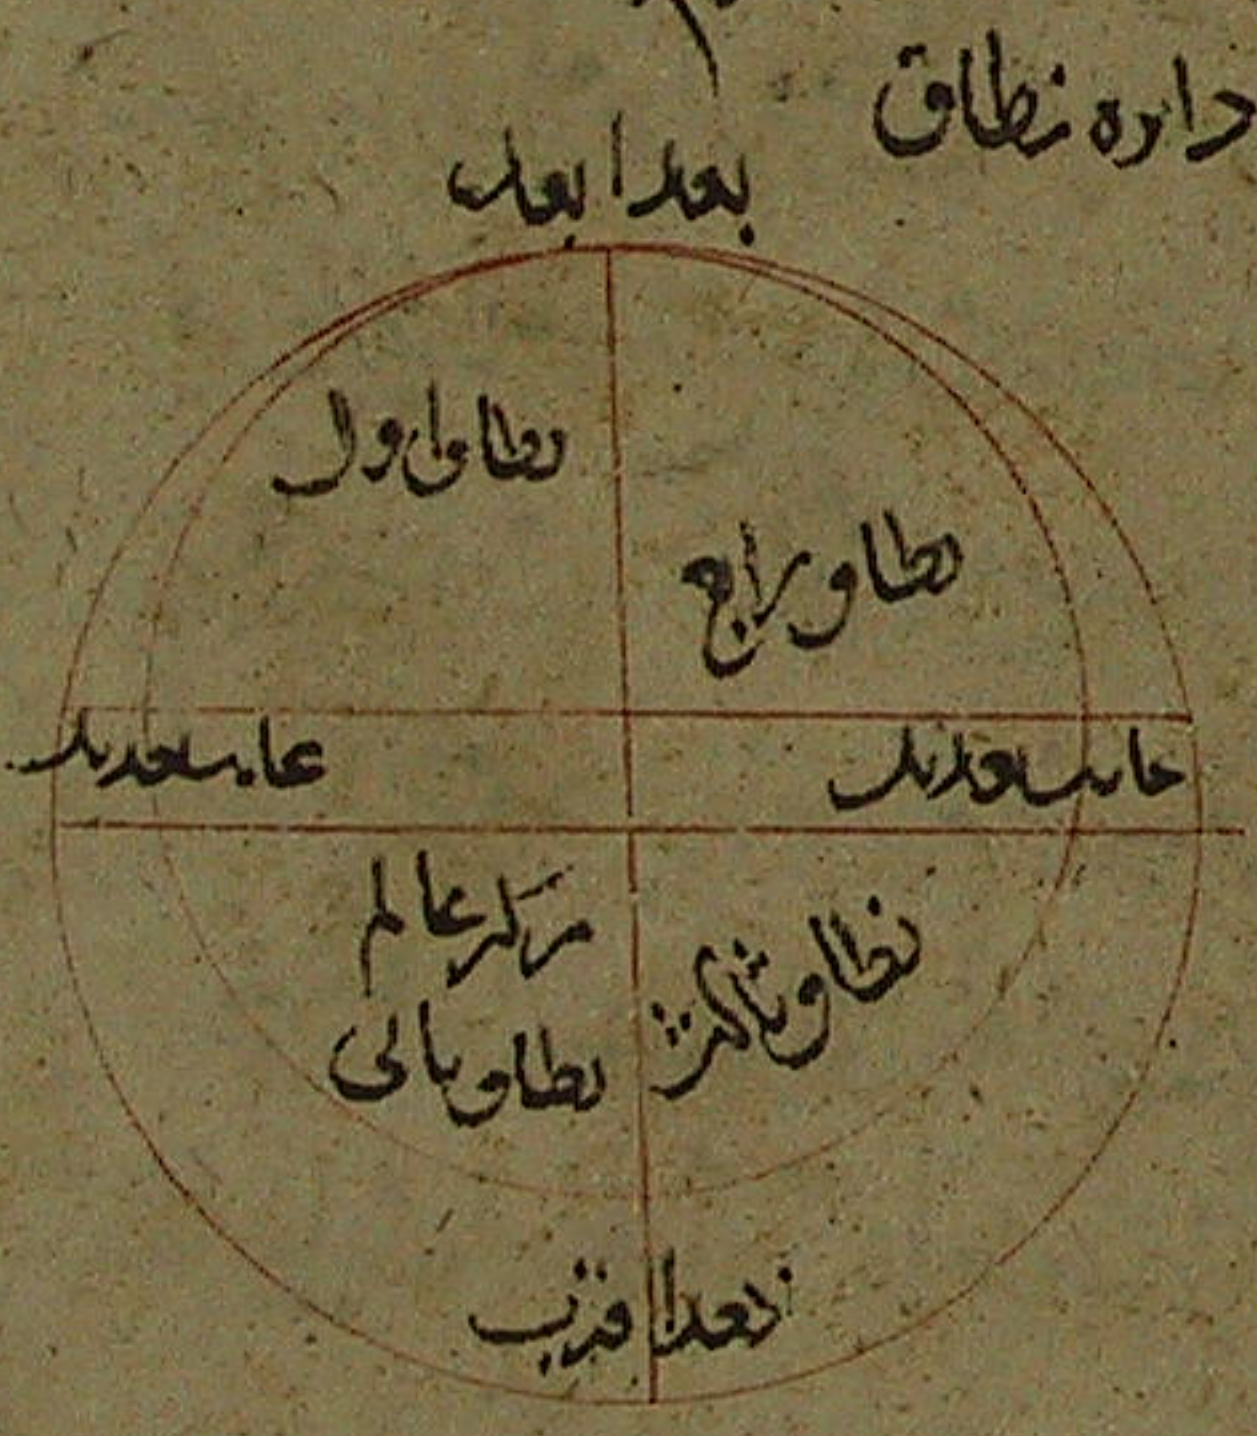 دایره نطاق
بعد ابعد
نطاق اول
نطاق رابع
غایت تعدیل
غایت تعدیل
مرکز عالم
نطاق ثالث
نطاق ثانی
بعد اقرب